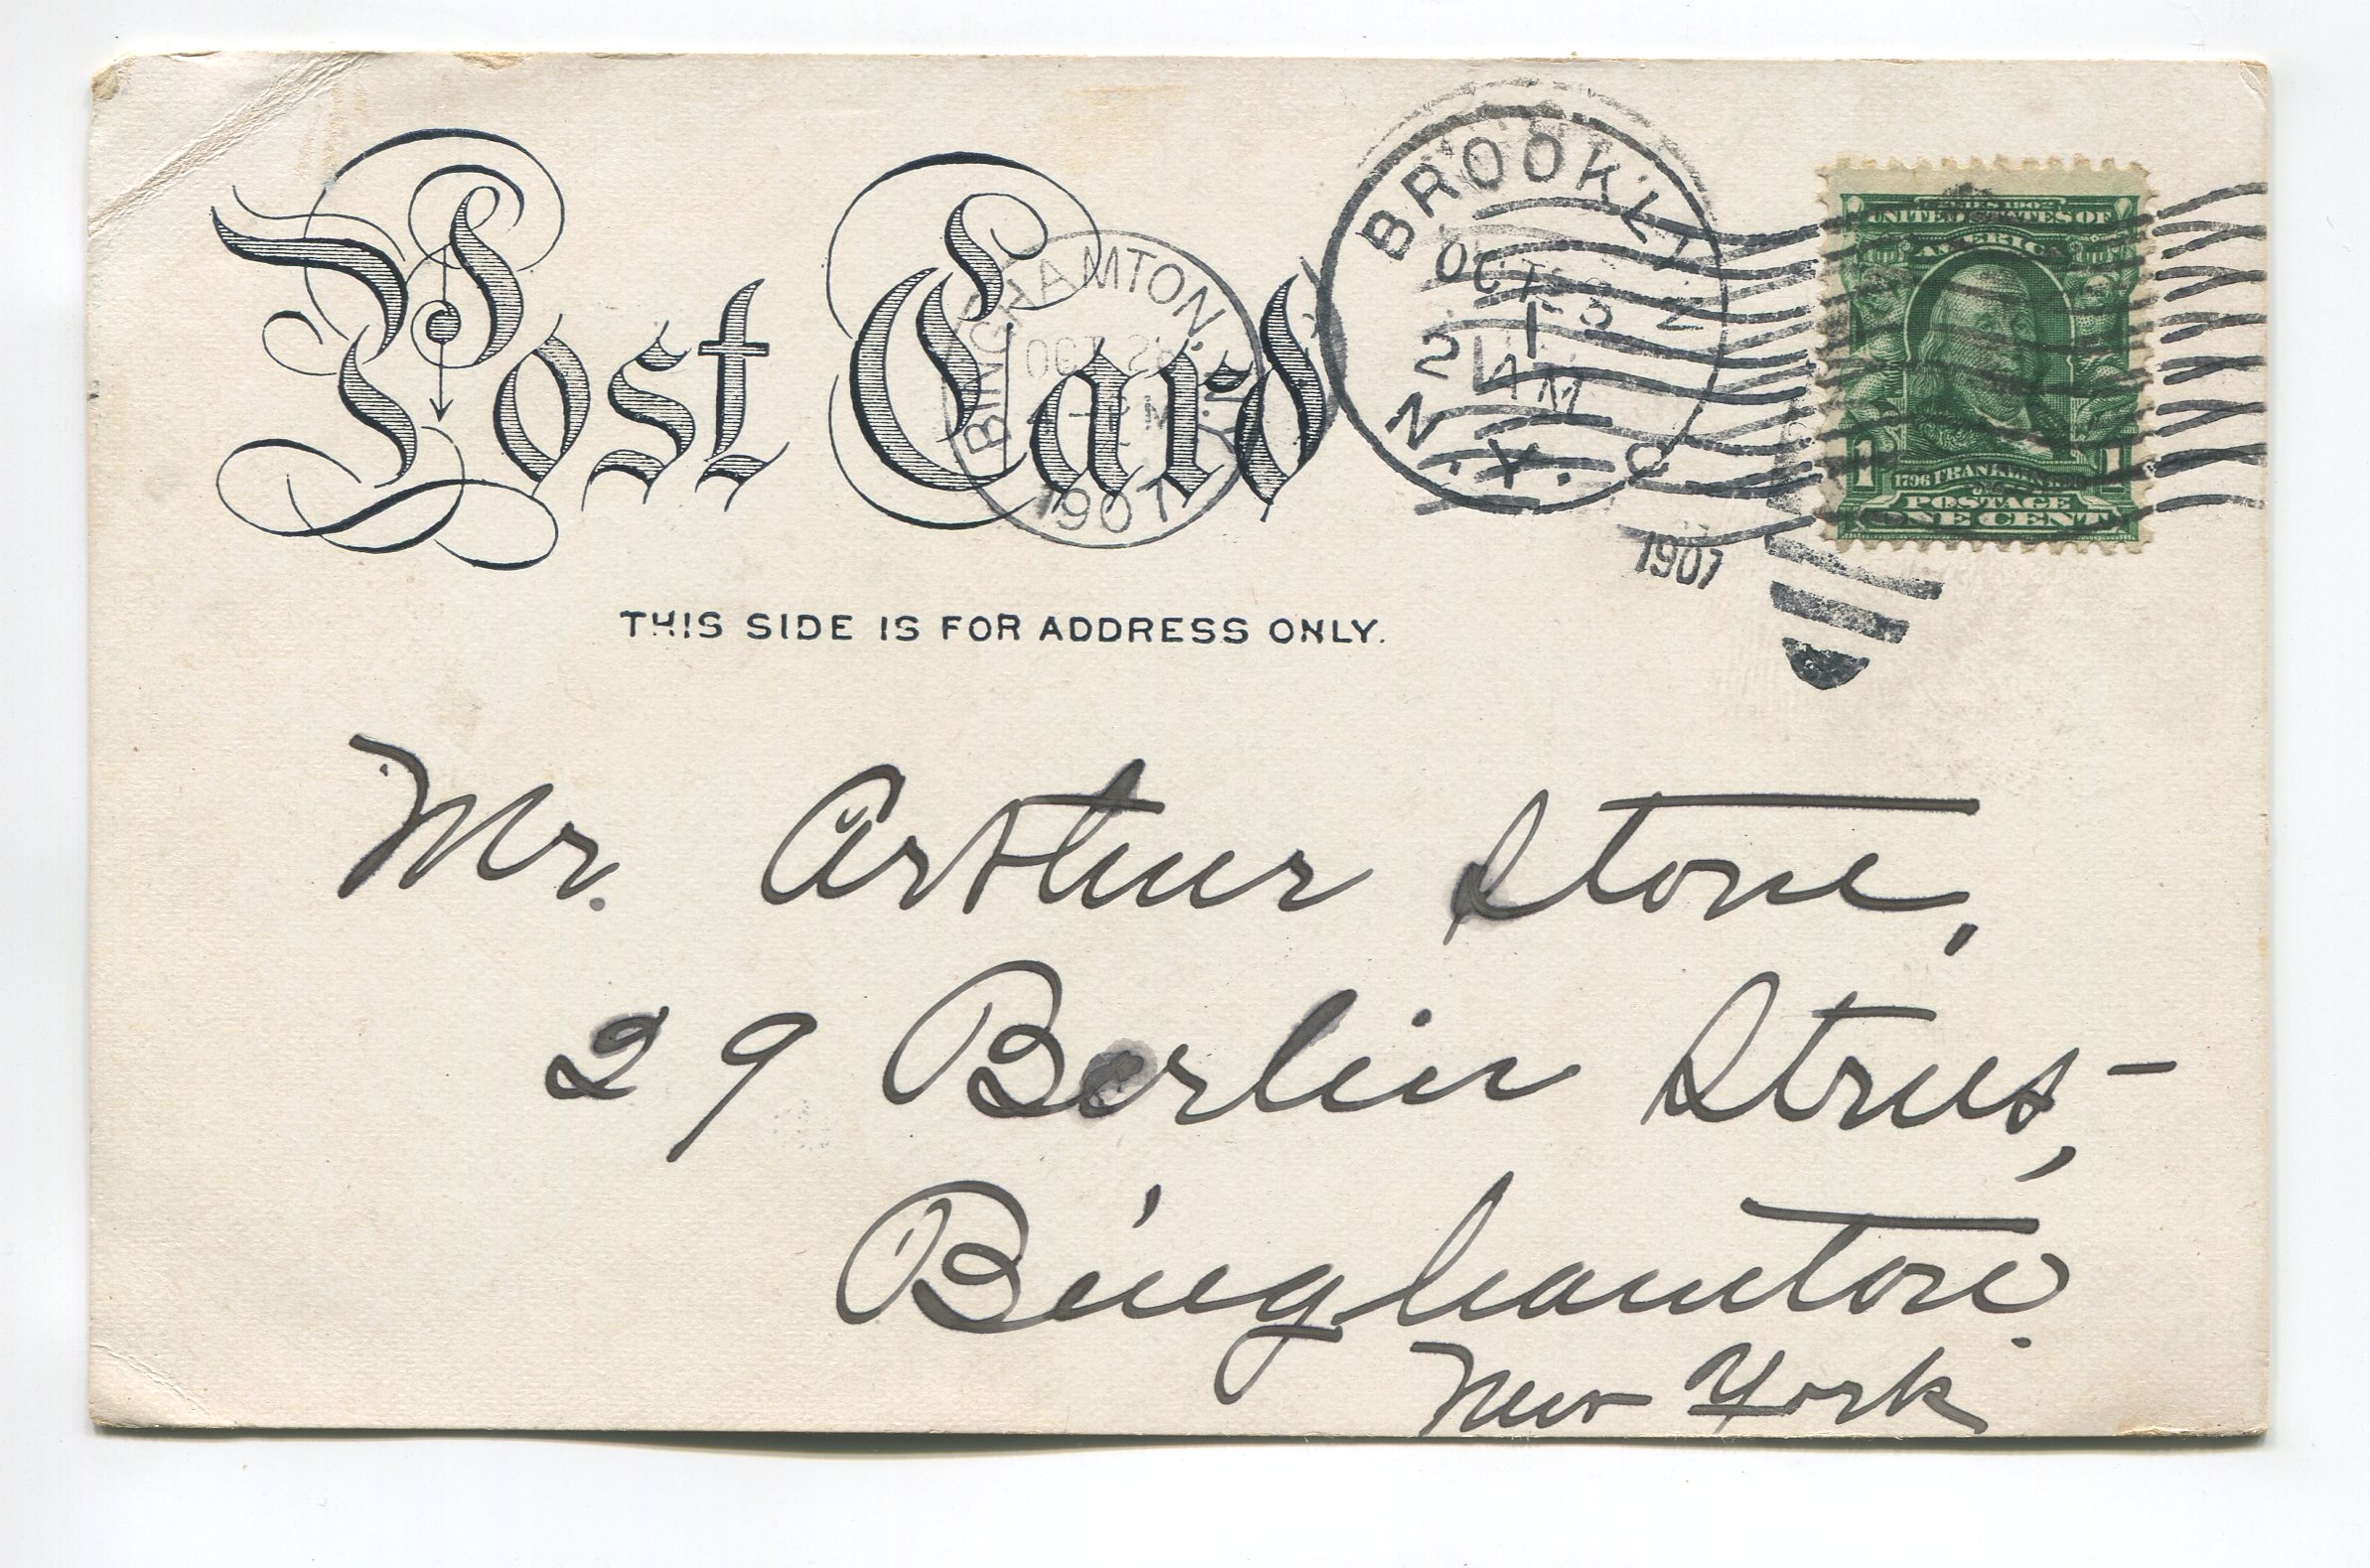 Post Card
BINGHAMTON, N.Y.
OCT 2
PM
1907
BROOKLYN
OCT
1
2 AM
N.Y.
1907
SERIES 1902
UNITED STATES OF
AMERICA
1 1
1706 FRANKLIN 1790
POSTAGE
ONE CENT
THIS SIDE IS FOR ADDRESS ONLY.
Mr. Arthur Stone,
29 Berlin Street,
Binghamton.
New York